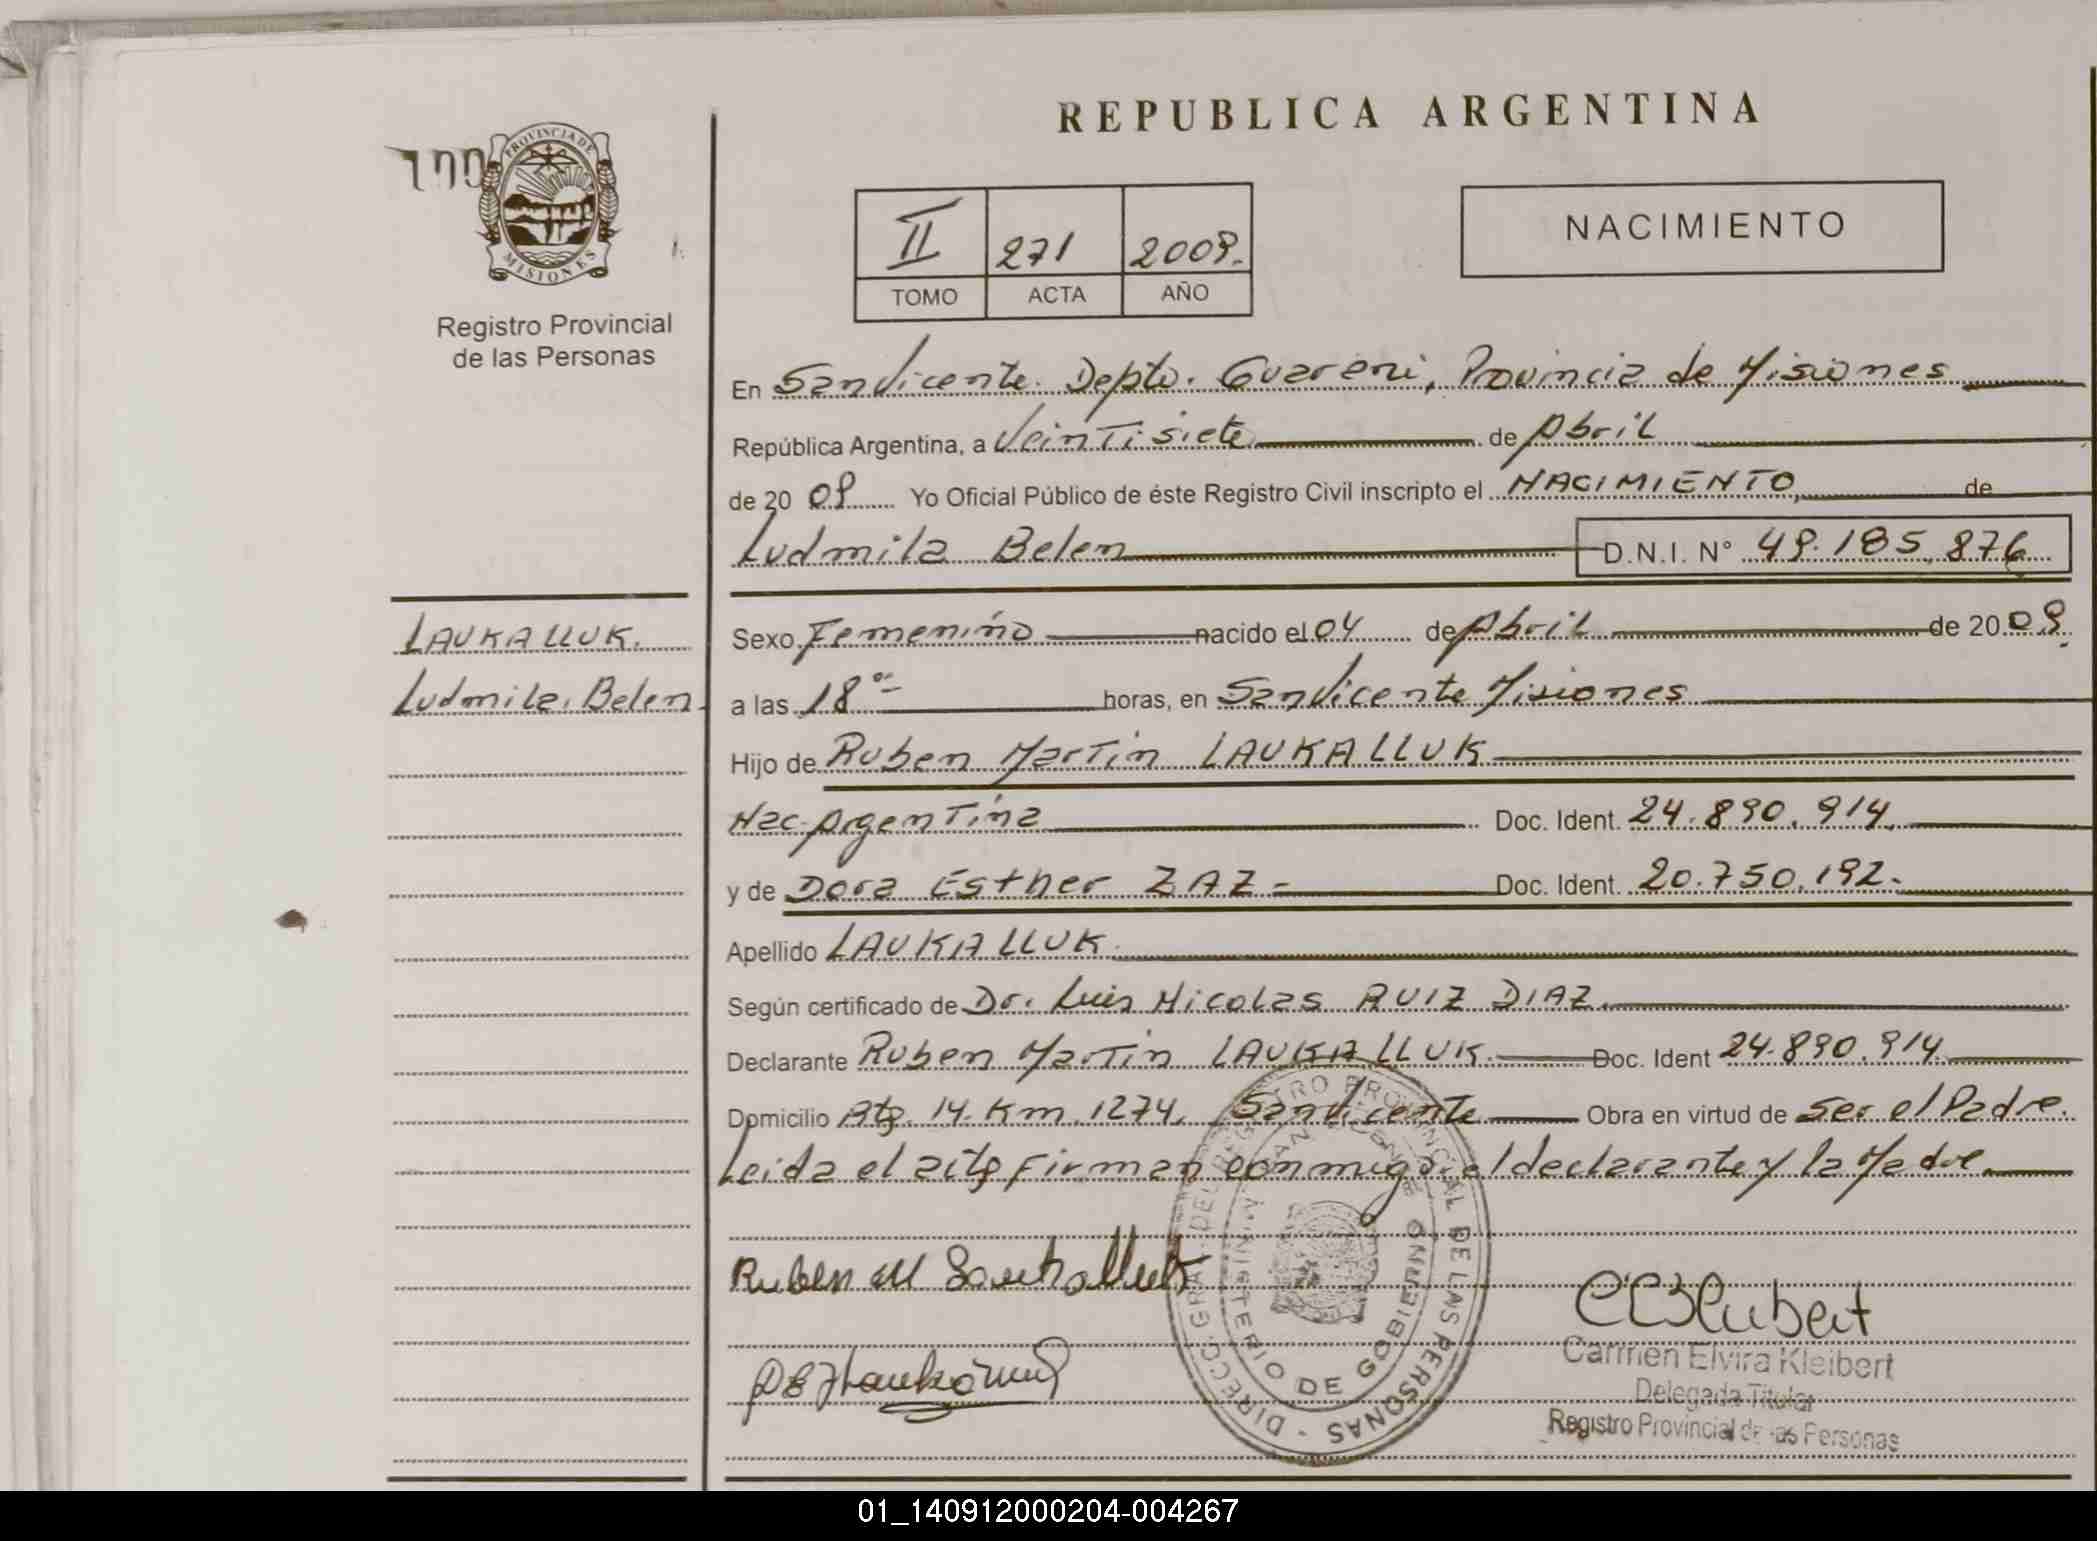 REPUBLICA ARGENTINA
100
PROVINCIA DE
MISIONES
Registro Provincial
de las Personas
II 271 2009.
TOMO ACTA AÑO
NACIMIENTO
En San Vicente. Depto. Guarani, Provincia de Misiones
República Argentina, a Veintisiete de Abril
de 20 09 Yo Oficial Público de éste Registro Civil inscripto el NACIMIENTO, de
Ludmila Belen D.N.I. N° 49.185.876
LAUKALLUK.
Ludmila Belen
Sexo Femenino nacido el 04 de Abril de 20 09.
a las 18 00 horas, en San Vicente Misiones
Hijo de Ruben Martin LAUKALLUK
Nac. Argentina Doc. Ident. 24.890.914.
y de Dora Esther ZAZ - Doc. Ident. 20.750.192.
Apellido LAUKALLUK.
Según certificado de Dr. Luis Nicolas RUIZ DIAZ.
Declarante Ruben Martin LAUKALLUK. Doc. Ident 24.890.914.
Domicilio Rta. 14. Km. 1274, San Vicente Obra en virtud de Ser el Padre.
Leida el acta Firman conmigo el declarante y la Madre.
Ruben M Laukalluk
DIRECC. GRAL. DEL REGISTRO PROVINCIAL DE LAS PERSONAS -
MINISTERIO DE GOBIERNO
Carmen Elvira Kleibert
Delegada Titular
Registro Provincial de las Personas
01_140912000204-004267